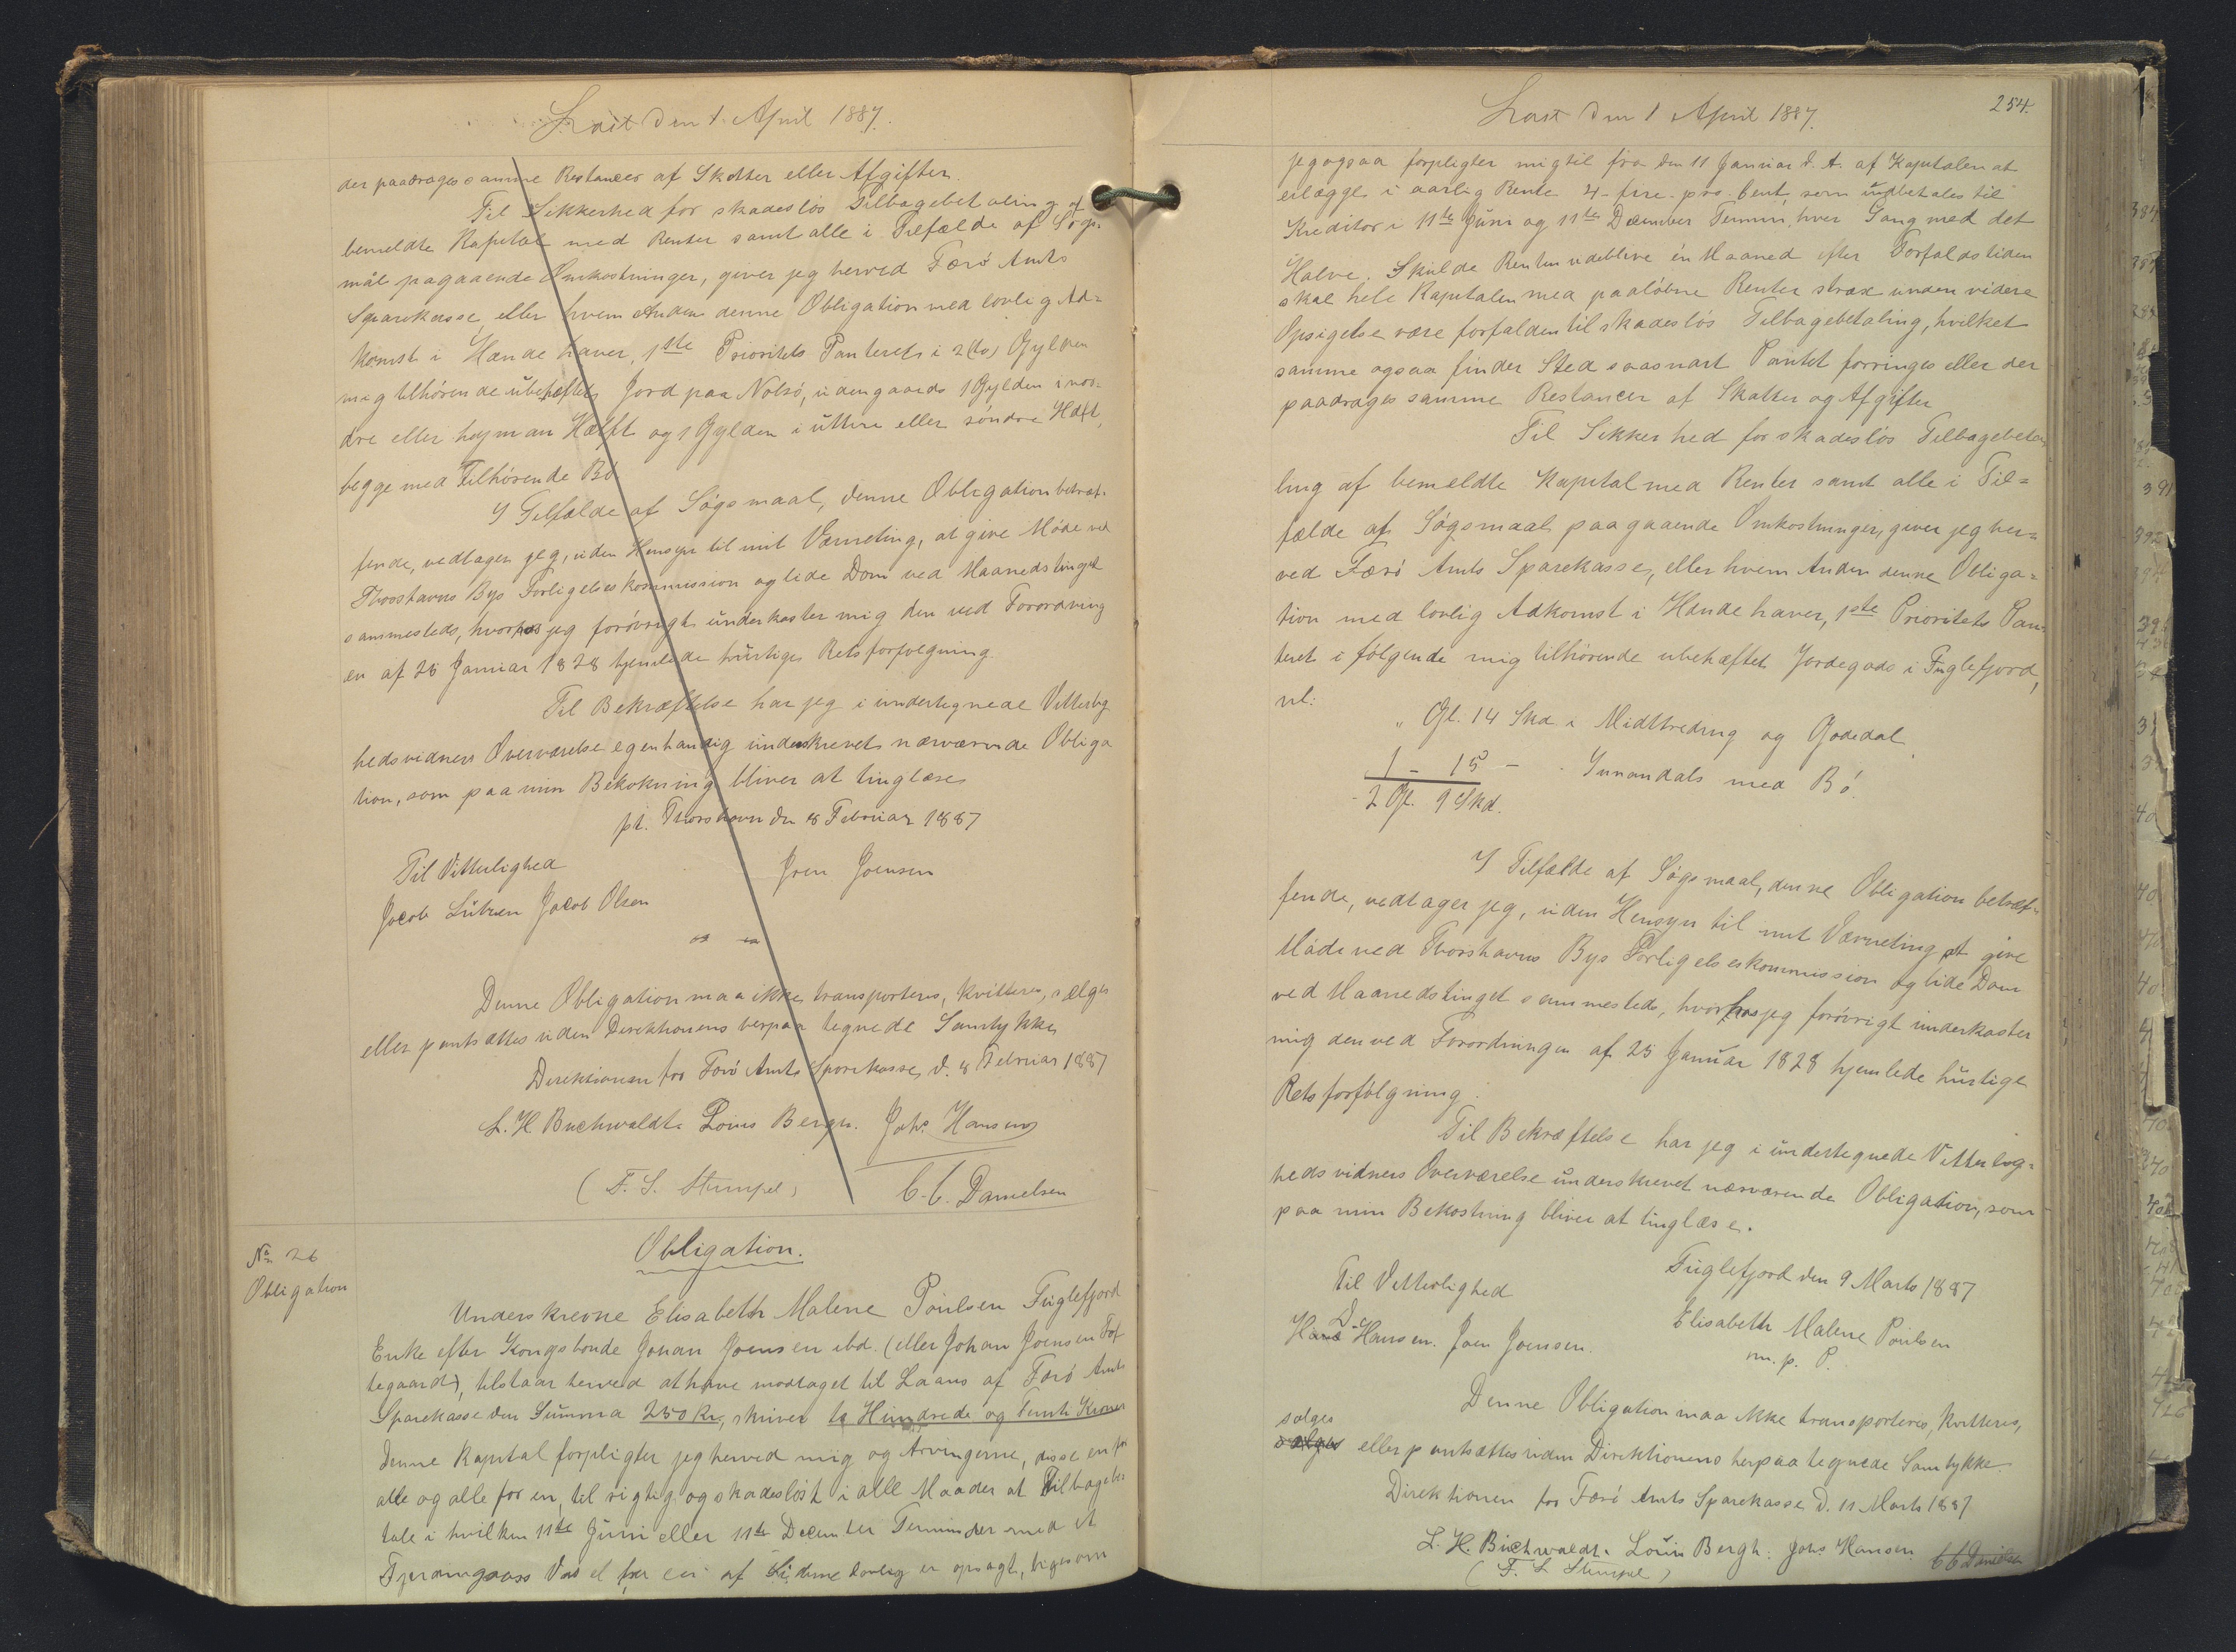 Læst den 1. April 1887.
der paadrages samme Restancer af Skatter eller Afgifter.
Til Sikkerhed for skadeslös Tilbagebetaling af
bemeldte Kapital med Renter samt alle i Tilfælde af Sögs-
mål pagaaende Omkostninger, giver jeg herved Færö Amts
Sparekasse, eller hvem Anden denne Obligation med lovlig Ad-
komst i Hænde haver, 1ste Prioritets Panteret i 2 (to) Gylden
mig tilhörende ubehæftet Jord paa Nolsö, udengaards 1 Gylden i nor-
dre eller heyman Hælft og 1 Gylden i úttere eller söndre Hælft,
begge med Tilhörende Bö
I Tilfælde af Sögsmaal, denne Obligation betræf-
fende, vedtager jeg, uden Hensyn til mit Værneting, at give Möde ved
Thorshavns Bys Forligelseskommission og lide Dom ved Maanedstinget
sammesteds, hvorhos jeg forövrigt underkaster mig den ved Forordning
en af 25 Januar 1828 hjemlede hurtige Retsforfölgning
Til Bekræftelse har jeg i undertegnede Vitterlig
hedsvidners Overværelse egenhændig underskrevet nærværende Obliga
tion, som paa min Bekostning bliver at tinglæses
pt. Thorshavn den 8 Februar 1887
Til Vitterlighed
Joen Joensen
Jacob Lützen Jacob Olsen
Denne Obligation maa ikke transporteres, kvitteres, sælges
eller pantsættes uden Direktionens herpaa tegnede Samtykke
Direktionen for Færö Amts Sparekasse, d. 8 Februar 1887
L. H. Buchwaldt. Louis Bergh. Johs. Hansen
(F. S. Stempel)
C. C. Danielsen
No 26
Obligation
Obligation.
Underskrevne Elisabeth Malene Poulsen Fuglefjord
Enke efter Kongsbonde Johan Joensen ibd. (eller Johan Joensen Tof
tegaard), tilstaar herved at have modtaget til Laans af Færö Amts
Sparekasse den Summa 250 Kr, skriver to Hundrede og femti Kroner
Denne Kapital forpligter jeg herved mig og Arvingerne, disse en for
alle og alle for en, til rigtig og skadeslöst i alle Maader at Tilbagebe-
tale i hvilken 11te Juni eller 11te December Termin der med et
Fjerdingaars Varsel fra en af Siderne lovlig er opsagt, ligesom
254.
Læst den 1 April 1887.
jeg ogsaa forpligter mig til fra den 11 Januar d. A. af Kapitalen at
erlægge i aarlig Rente 4 - fire - pro Cent, som udbetales til
Kreditor i 11te Juni og 11te December Termin, hver Gang med det
Halve. Skulde Renten udeblive én Maaned efter Forfaldstiden
skal hele Kapitalen med paalöbne Renter strax uden videre
Opsigelse være forfalden til skadeslös Tilbagebetaling, hvilket
samme ogsaa finder Sted saasnart Pantet forringes eller der
paadrages samme Restancer af Skatter og Afgifter
Til Sikkerhed for skadeslös Tilbagebeta
ling af bemeldte Kapital med Renter samt alle i Til-
fælde af Sögsmaal paagaaende Omkostninger, giver jeg her-
ved Færö Amts Sparekasse, eller hvem Anden denne Obliga-
tion med lovlig Adkomst i Hænde haver, 1ste Prioritets Pan-
teret i fölgende mig tilhörende ubehæftet Jordegods i Fuglefjord,
nl:
" Gl. 14 Skd i Midttreding og Godedal
1 - 15 - - Innandals med Bö.
2 Gl. 9 Skd.
I Tilfælde af Sögsmaal, denne Obligation betræf-
fende, vedtager jeg, uden Hensyn til mit Værneting at give
Möde ved Thorshavns Bys Forligelseskommission og lide Dom
ved Maanedstinget sammesteds, hvorhos jeg forövrigt underkaster
mig den ved Forordningen af 25 Januar 1828 hjemlede hurtige
Retsforfölgning.
Til Bekræftelse har jeg i undertegnede Vitterlig-
hedsvidners Overværelse underskrevet nærværende Obligation, som
paa min Bekostning bliver at tinglæse.
Fuglefjord den 9 Marts 1887
Til Vitterlighed
Elisabeth Malene Poulsen
D. Hansen. Joen Joensen.
m. p. P.
Denne Obligation maa ikke transporteres, kvitteres,
sælges
sælges eller pantsættes uden Direktionens herpaa tegnede Samtykke
Direktionen for Færö Amts Sparekasse d. 11 Marts 1887
L. H. Buchwaldt. Louis Bergh. Johs Hansen. C C Danielsen
(F. S. Stempel)